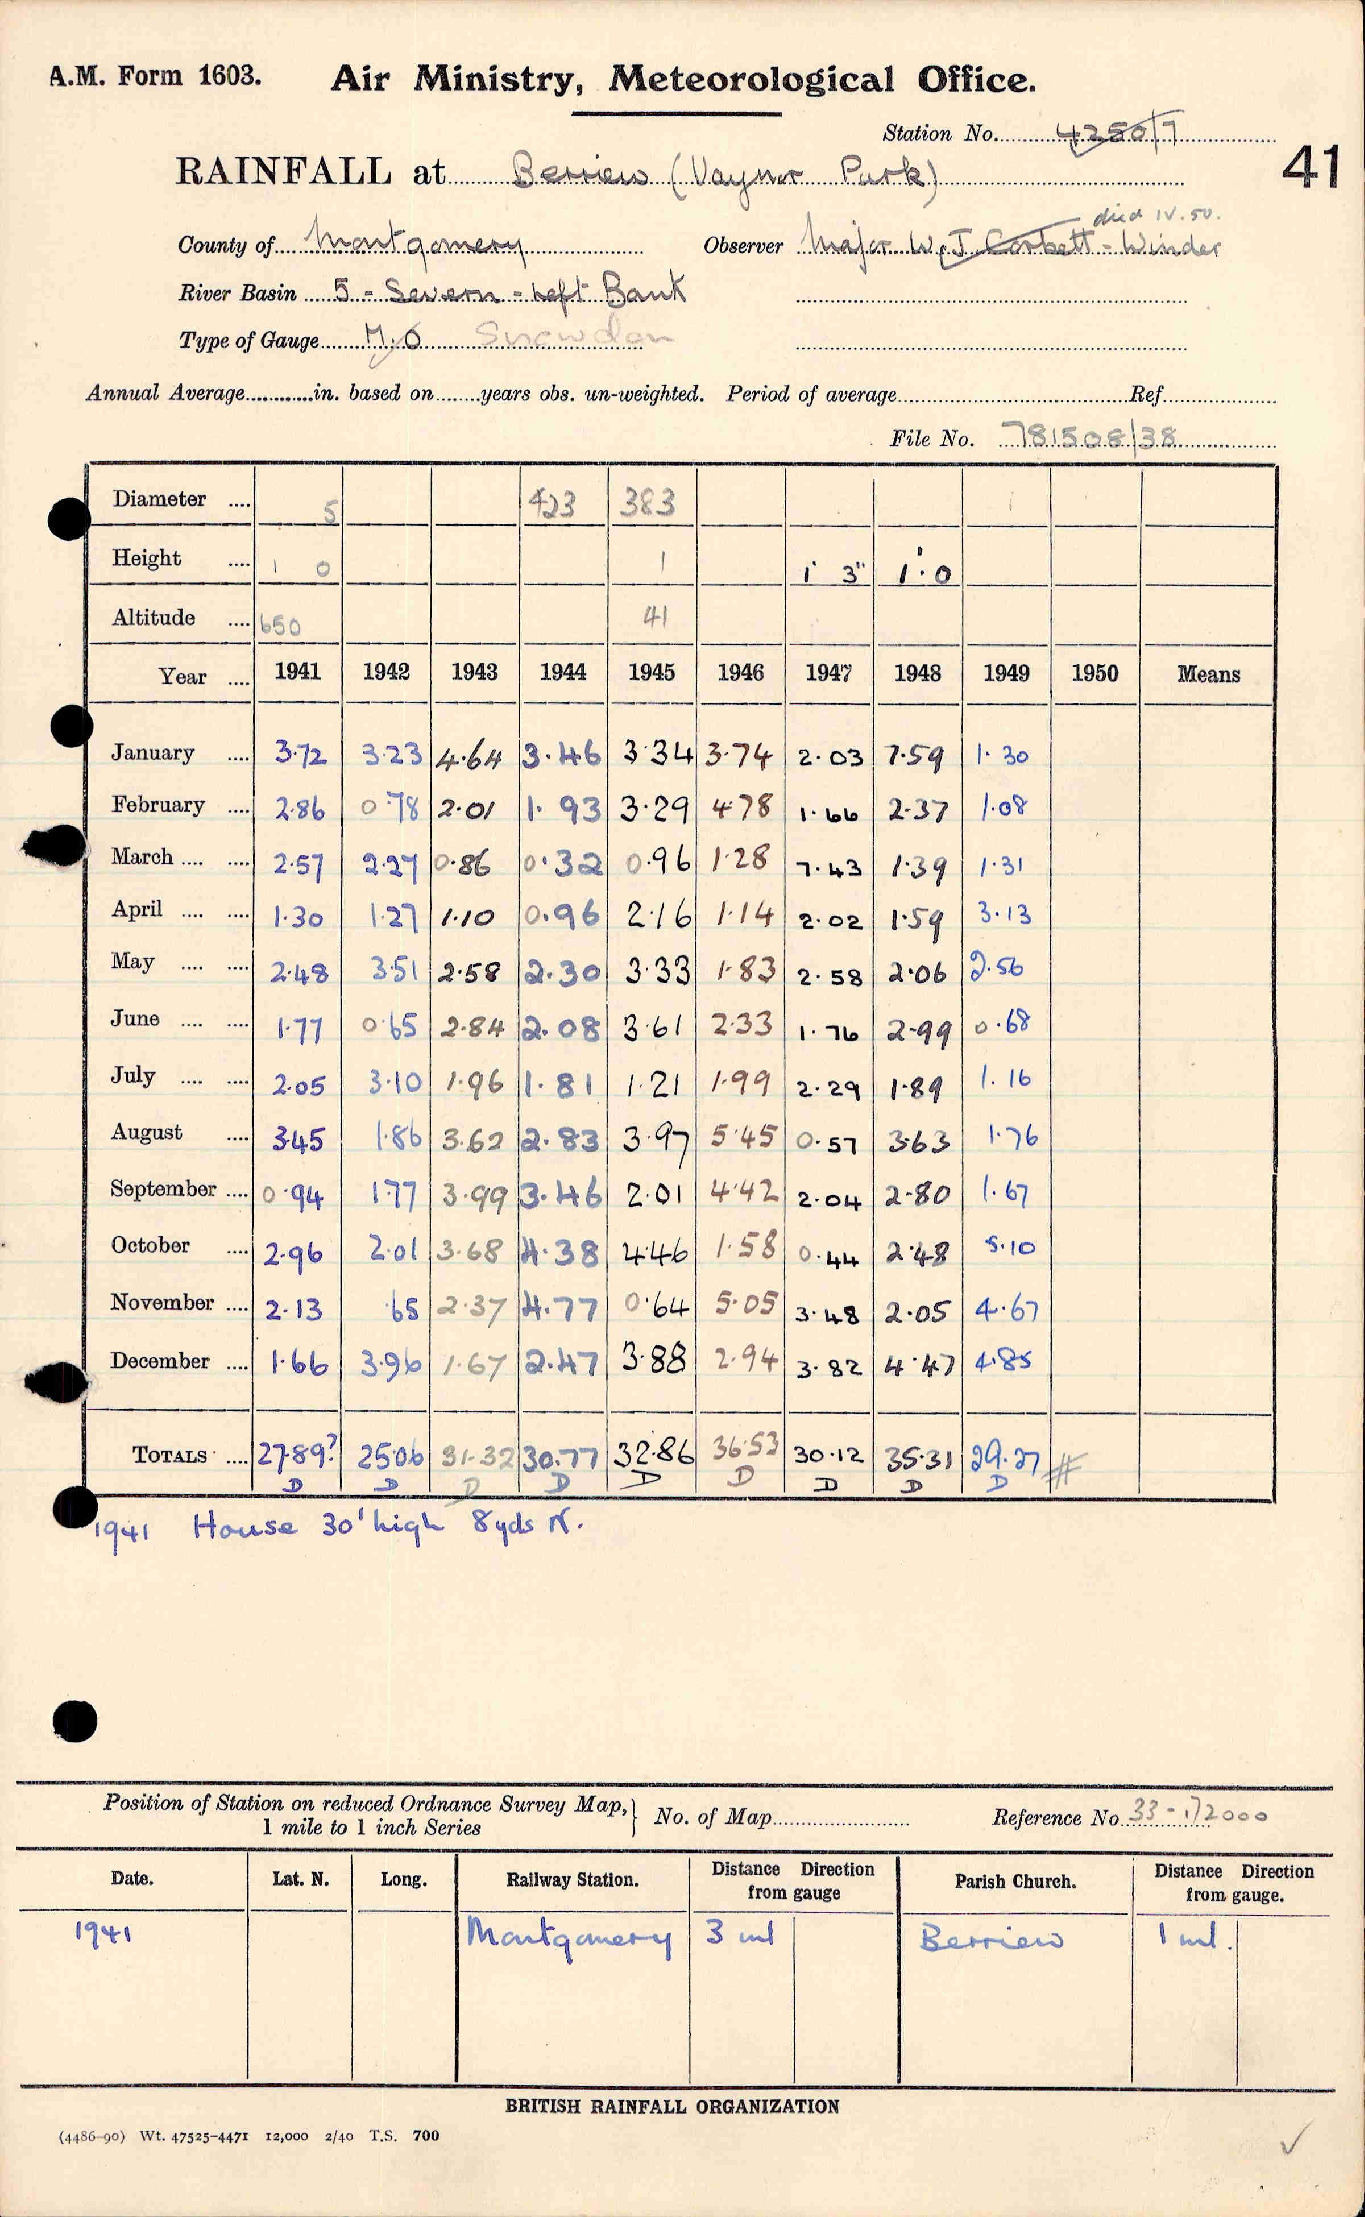 A.M. Form 1603. Air Ministry, Meteorological Office.
Station No. 4250/7
41
RAINFALL at Berriew (Vaynor Park)
died IV.50.
County of Montgomery Observer Major W. J. Corbett-Winder
River Basin 5 - Severn - Left Bank
Type of Gauge M.O Snowdon
Annual Average in. based on years obs. un-weighted. Period of average Ref.
File No. 781508/38
Diameter .... 5 423 383
Height .... 1 0 1 1' 3" 1'.0
Altitude .... 650 41
Year .... 1941 1942 1943 1944 1945 1946 1947 1948 1949 1950 Means
January .... 3.72 3.23 4.64 3.46 3.34 3.74 2.03 7.59 1.30
February .... 2.86 0.78 2.01 1.93 3.29 4.78 1.66 2.37 1.08
March .... .... 2.57 2.27 0.86 0.32 0.96 1.28 7.43 1.39 1.31
April .... .... 1.30 1.27 1.10 0.96 2.16 1.14 2.02 1.59 3.13
May .... .... 2.48 3.51 2.58 2.30 3.33 1.83 2.58 2.06 2.56
June .... .... 1.77 0.65 2.84 2.08 3.61 2.33 1.76 2.99 0.68
July .... .... 2.05 3.10 1.96 1.81 1.21 1.99 2.29 1.89 1.16
August .... 3.45 1.86 3.62 2.83 3.97 5.45 0.57 3.63 1.76
September .... 0.94 1.77 3.99 3.46 2.01 4.42 2.04 2.80 1.67
October .... 2.96 2.01 3.68 4.38 4.46 1.58 0.44 2.48 5.10
November .... 2.13 .65 2.37 4.77 0.64 5.05 3.48 2.05 4.67
December .... 1.66 3.96 1.67 2.47 3.88 2.94 3.82 4.47 4.85
TOTALS .... 27.89? 25.06 31.32 30.77 32.86 36.53 30.12 35.31 29.27 #
D D D D D D D D D
1941 House 30' high 8yds N.
Position of Station on reduced Ordnance Survey Map, 1 mile to 1 inch Series } No. of Map Reference No 33-172000
Date. Lat. N. Long. Railway Station. Distance Direction from gauge Parish Church. Distance Direction from gauge.
1941 Montgomery 3 ml Berriew 1 ml.
BRITISH RAINFALL ORGANIZATION
(4486-90) Wt. 47525-4471 12,000 2/40 T.S. 700